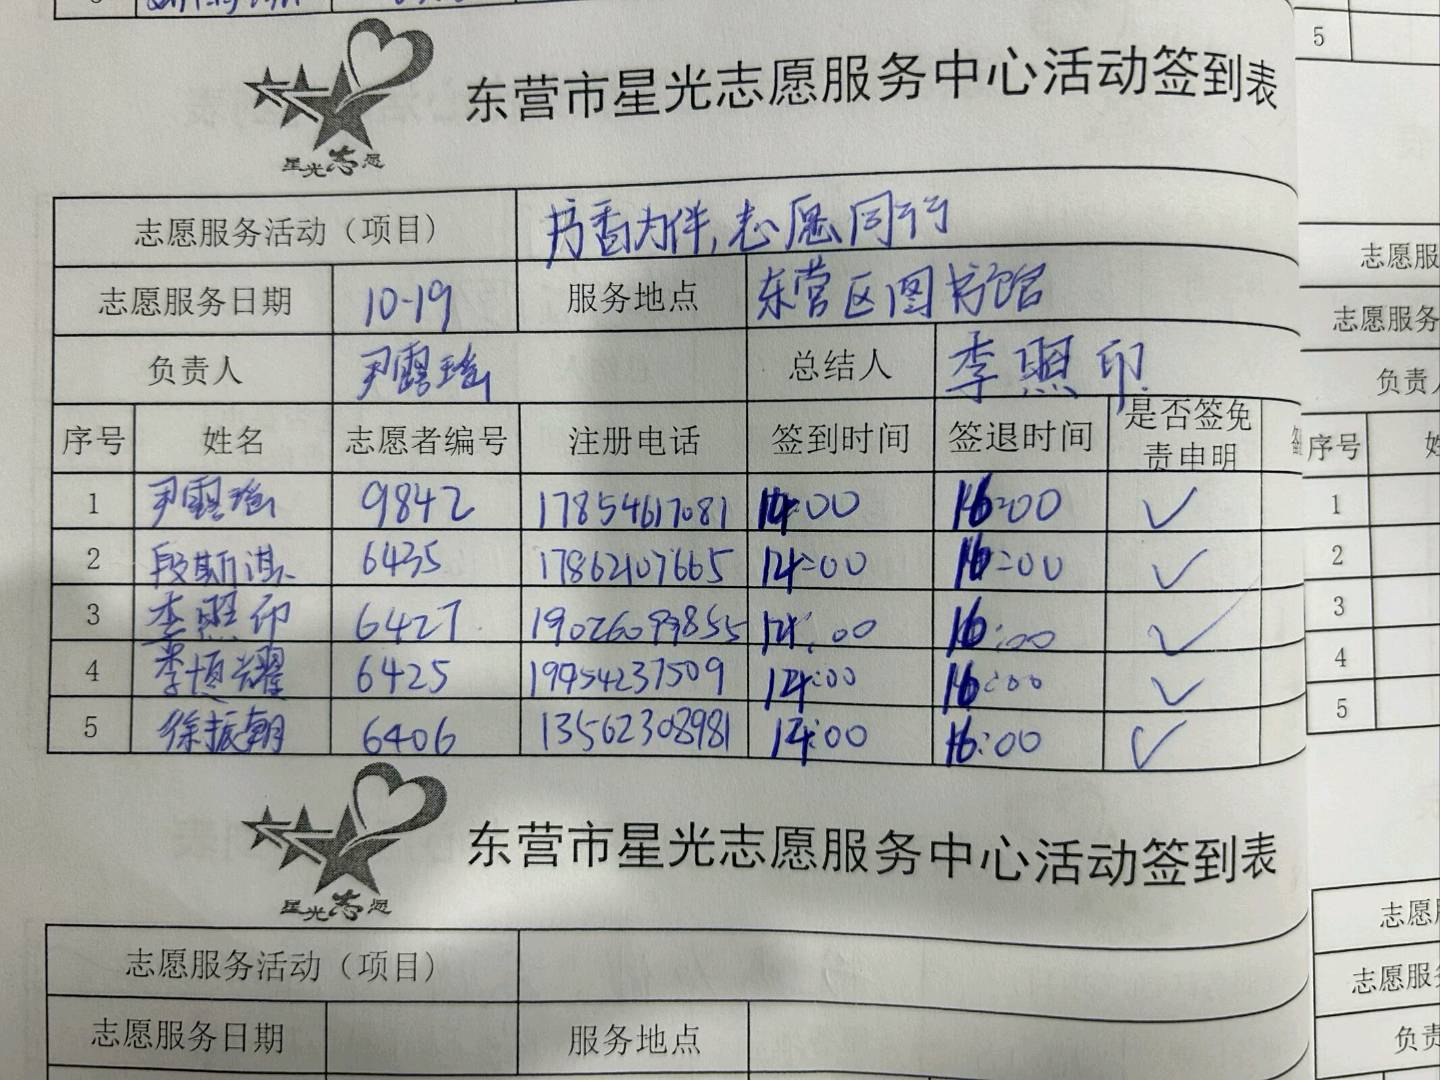 东营市星光志愿服务中心活动签到表
星光志愿
志愿服务活动（项目） 书香为伴,志愿同行
志愿服务日期 10-19 服务地点 东营区图书馆
负责人 尹露瑶 总结人 李照印
序号 姓名 志愿者编号 注册电话 签到时间 签退时间 是否签免责申明
1 尹露瑶 9842 17854617081 14:00 16:00 ✓
2 段斯淇 6435 17862107665 14:00 16:00 ✓
3 李照印 6427 14:00 16:00 ✓
4 李恒耀 6425 19954237509 14:00 16:00 ✓
5 徐振朝 6406 13562308981 14:00 16:00 ✓
东营市星光志愿服务中心活动签到表
星光志愿
志愿服务活动（项目）
志愿服务日期 服务地点
5
志愿服
志愿服务
负责
序号
1
2
3
4
5
志愿
志愿服
负责